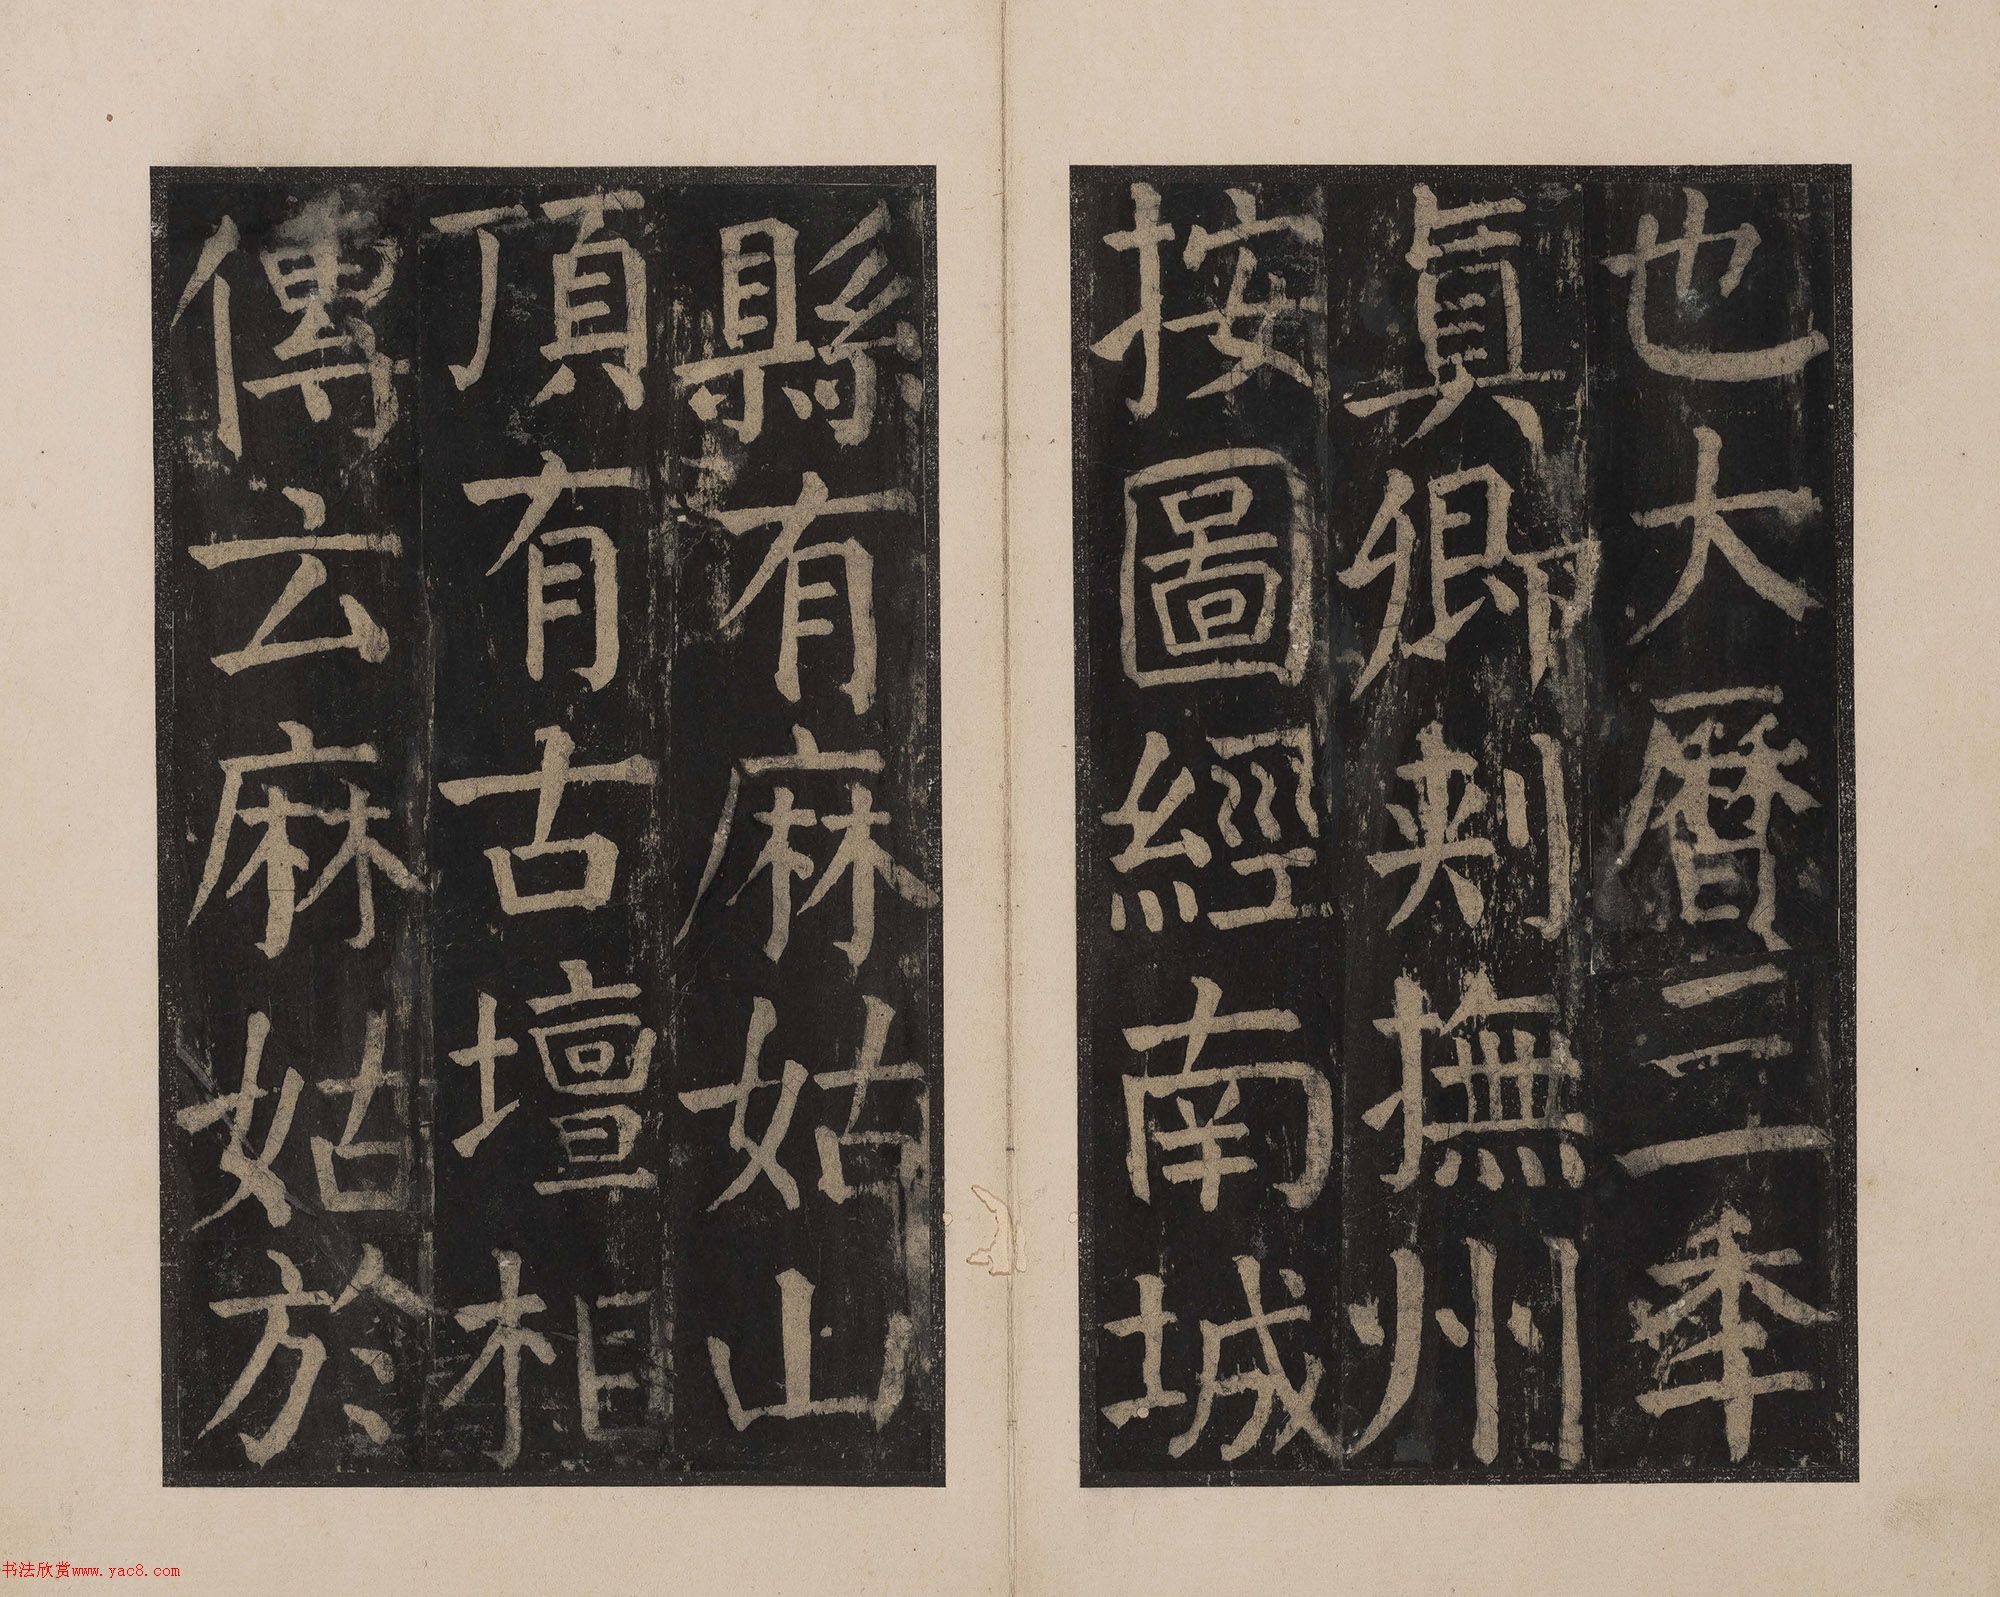 也大曆三年
真卿刺撫州
按圖經南城
縣有麻姑山
頂有古壇相
傳云麻姑於
书法欣赏www.yac8.com